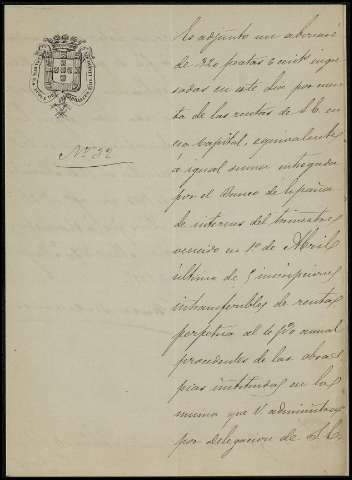 Nº 32
Es adjunto un abonaré
de 320 pesetas 6 cents ingre
sadas en este dia por cuen
ta de las rentas de S. E. en
esa Capital, equivalentes
á igual suma entregada
por el Banco de España
de intereses del trimestre
vencido en 1º de Abril
último de 5 inscripciones
intransferibles de renta
perpetua al 4 p% anual
procedentes de las obras
pias instituidas en la
misma que V. administra
por delegacion de S. E.